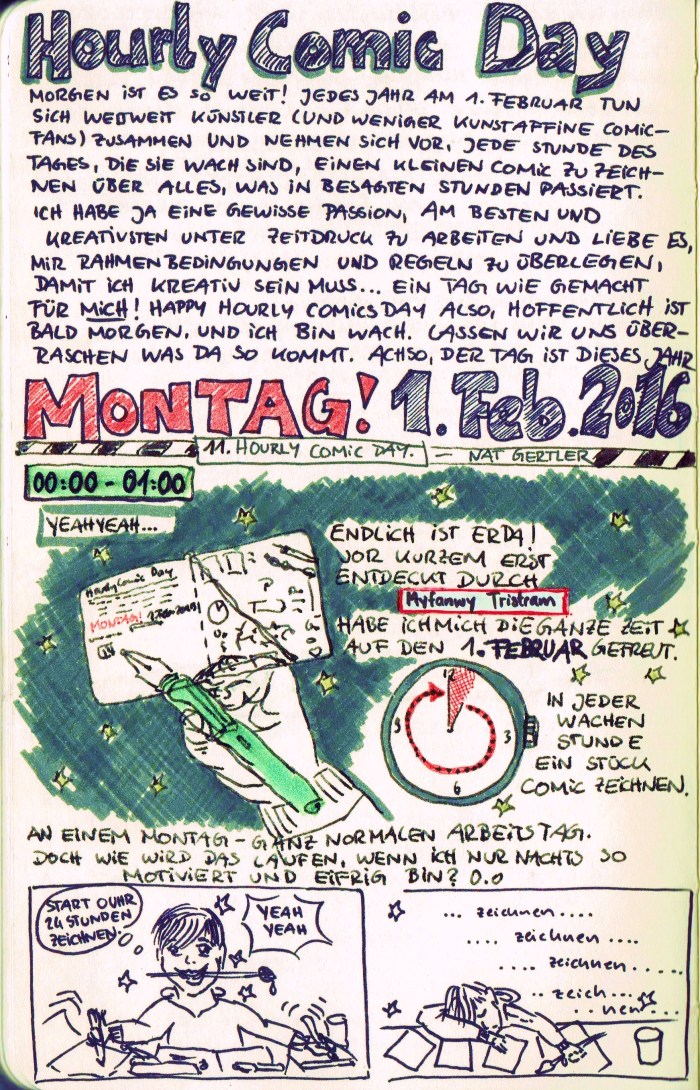 Hourly Comic Day
MORGEN IST ES SO WEIT! JEDES JAHR AM 1. FEBRUAR TUN
SICH WELTWEIT KÜNSTLER (UND WENIGER KUNSTAFFINE COMIC-
FANS) ZUSAMMEN UND NEHMEN SICH VOR, JEDE STUNDE DES
TAGES, DIE SIE WACH SIND, EINEN KLEINEN COMIC ZU ZEICH-
NEN ÜBER ALLES, WAS IN BESAGTEN STUNDEN PASSIERT.
ICH HABE JA EINE GEWISSE PASSION, AM BESTEN UND
KREATIVSTEN UNTER ZEITDRUCK ZU ARBEITEN UND LIEBE ES,
MIR RAHMENBEDINGUNGEN UND REGELN ZU ÜBERLEGEN,
DAMIT ICH KREATIV SEIN MUSS... EIN TAG WIE GEMACHT
FÜR MICH! HAPPY HOURLY COMICSDAY ALSO, HOFFENTLICH IST
BALD MORGEN, UND ICH BIN WACH. LASSEN WIR UNS ÜBER-
RASCHEN WAS DA SO KOMMT. ACHSO, DER TAG IST DIESES JAHR
MONTAG! 1. Feb. 2016
11. HOURLY COMIC DAY. - NAT GERTLER
00:00 - 01:00
YEAHYEAH...
ENDLICH IST ER DA!
VOR KURZEM ERST
ENTDECKT DURCH
Myfanwy Tristram
HABE ICH MICH DIE GANZE ZEIT
AUF DEN 1. FEBRUAR GEFREUT.
Hourly Comic Day
MONTAG!
12
3
6
9
IN JEDER
WACHEN
STUNDE
EIN STÜCK
COMIC ZEICHNEN.
AN EINEM MONTAG - GANZ NORMALEN ARBEITSTAG.
DOCH WIE WIRD DAS LAUFEN, WENN ICH NUR NACHTS SO
MOTIVIERT UND EIFRIG BIN? O.O
START 0 UHR
24 STUNDEN
ZEICHNEN.
YEAH
YEAH
... zeichnen ....
.... zeichnen ....
.... zeichnen .....
.. zeich...
..nen...